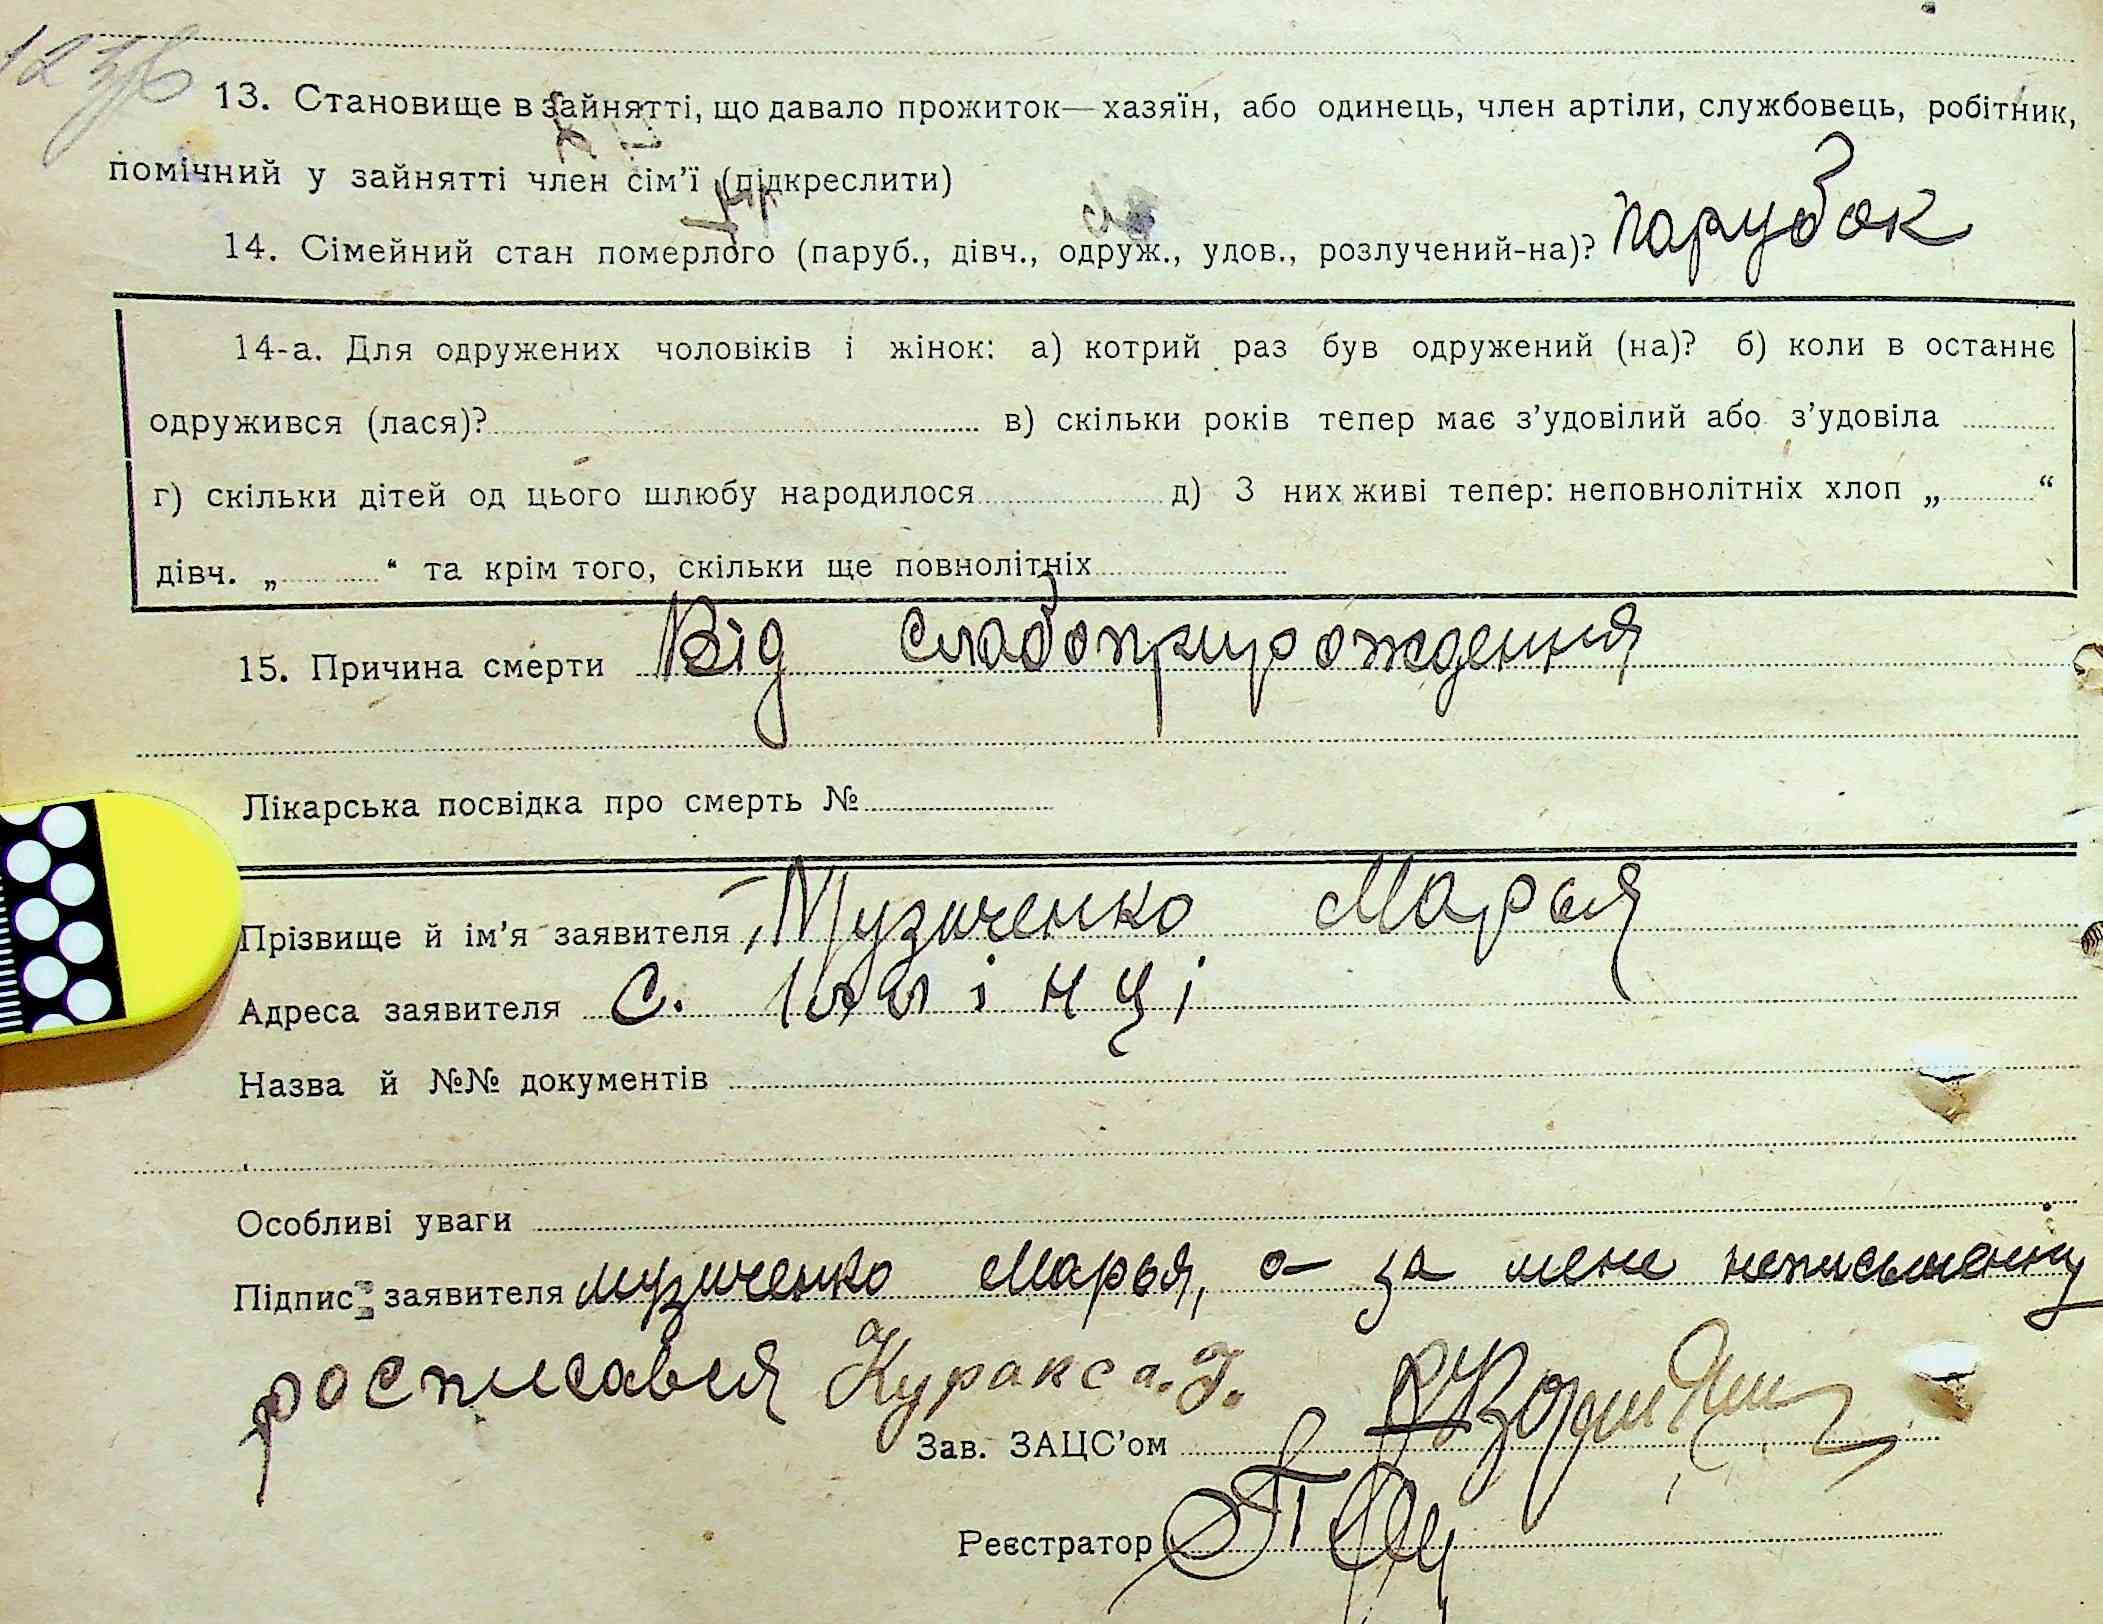 13. Становище в зайнятті, що давало прожиток—хазяїн, або одинець, член артіли, службовець, робітник,
помічний у зайнятті член сім’ї (підкреслити)
14. Сімейний стан померлого (паруб., дівч., одруж., удов., розлучений-на)? парубок
14-а. Для одружених чоловіків і жінок: а) котрий раз був одружений (на)? б) коли в останнє
одружився (лася)? в) скільки років тепер має з’удовілий або з’удовіла
г) скільки дітей од цього шлюбу народилося д) З них живі тепер: неповнолітніх хлоп „ “
дівч. „ “ та крім того, скільки ще повнолітніх
15. Причина смерти Від слабоприрождення
Лікарська посвідка про смерть №
Прізвище й ім’я заявителя Музиченко Марья
Адреса заявителя с. Іллінці
Назва й №№ документів
Особливі уваги
Підпис заявителя Музиченко Марья, а за мене неписьменну
росписався Куракса. Г.
Зав. ЗАЦС’ом
Реєстратор